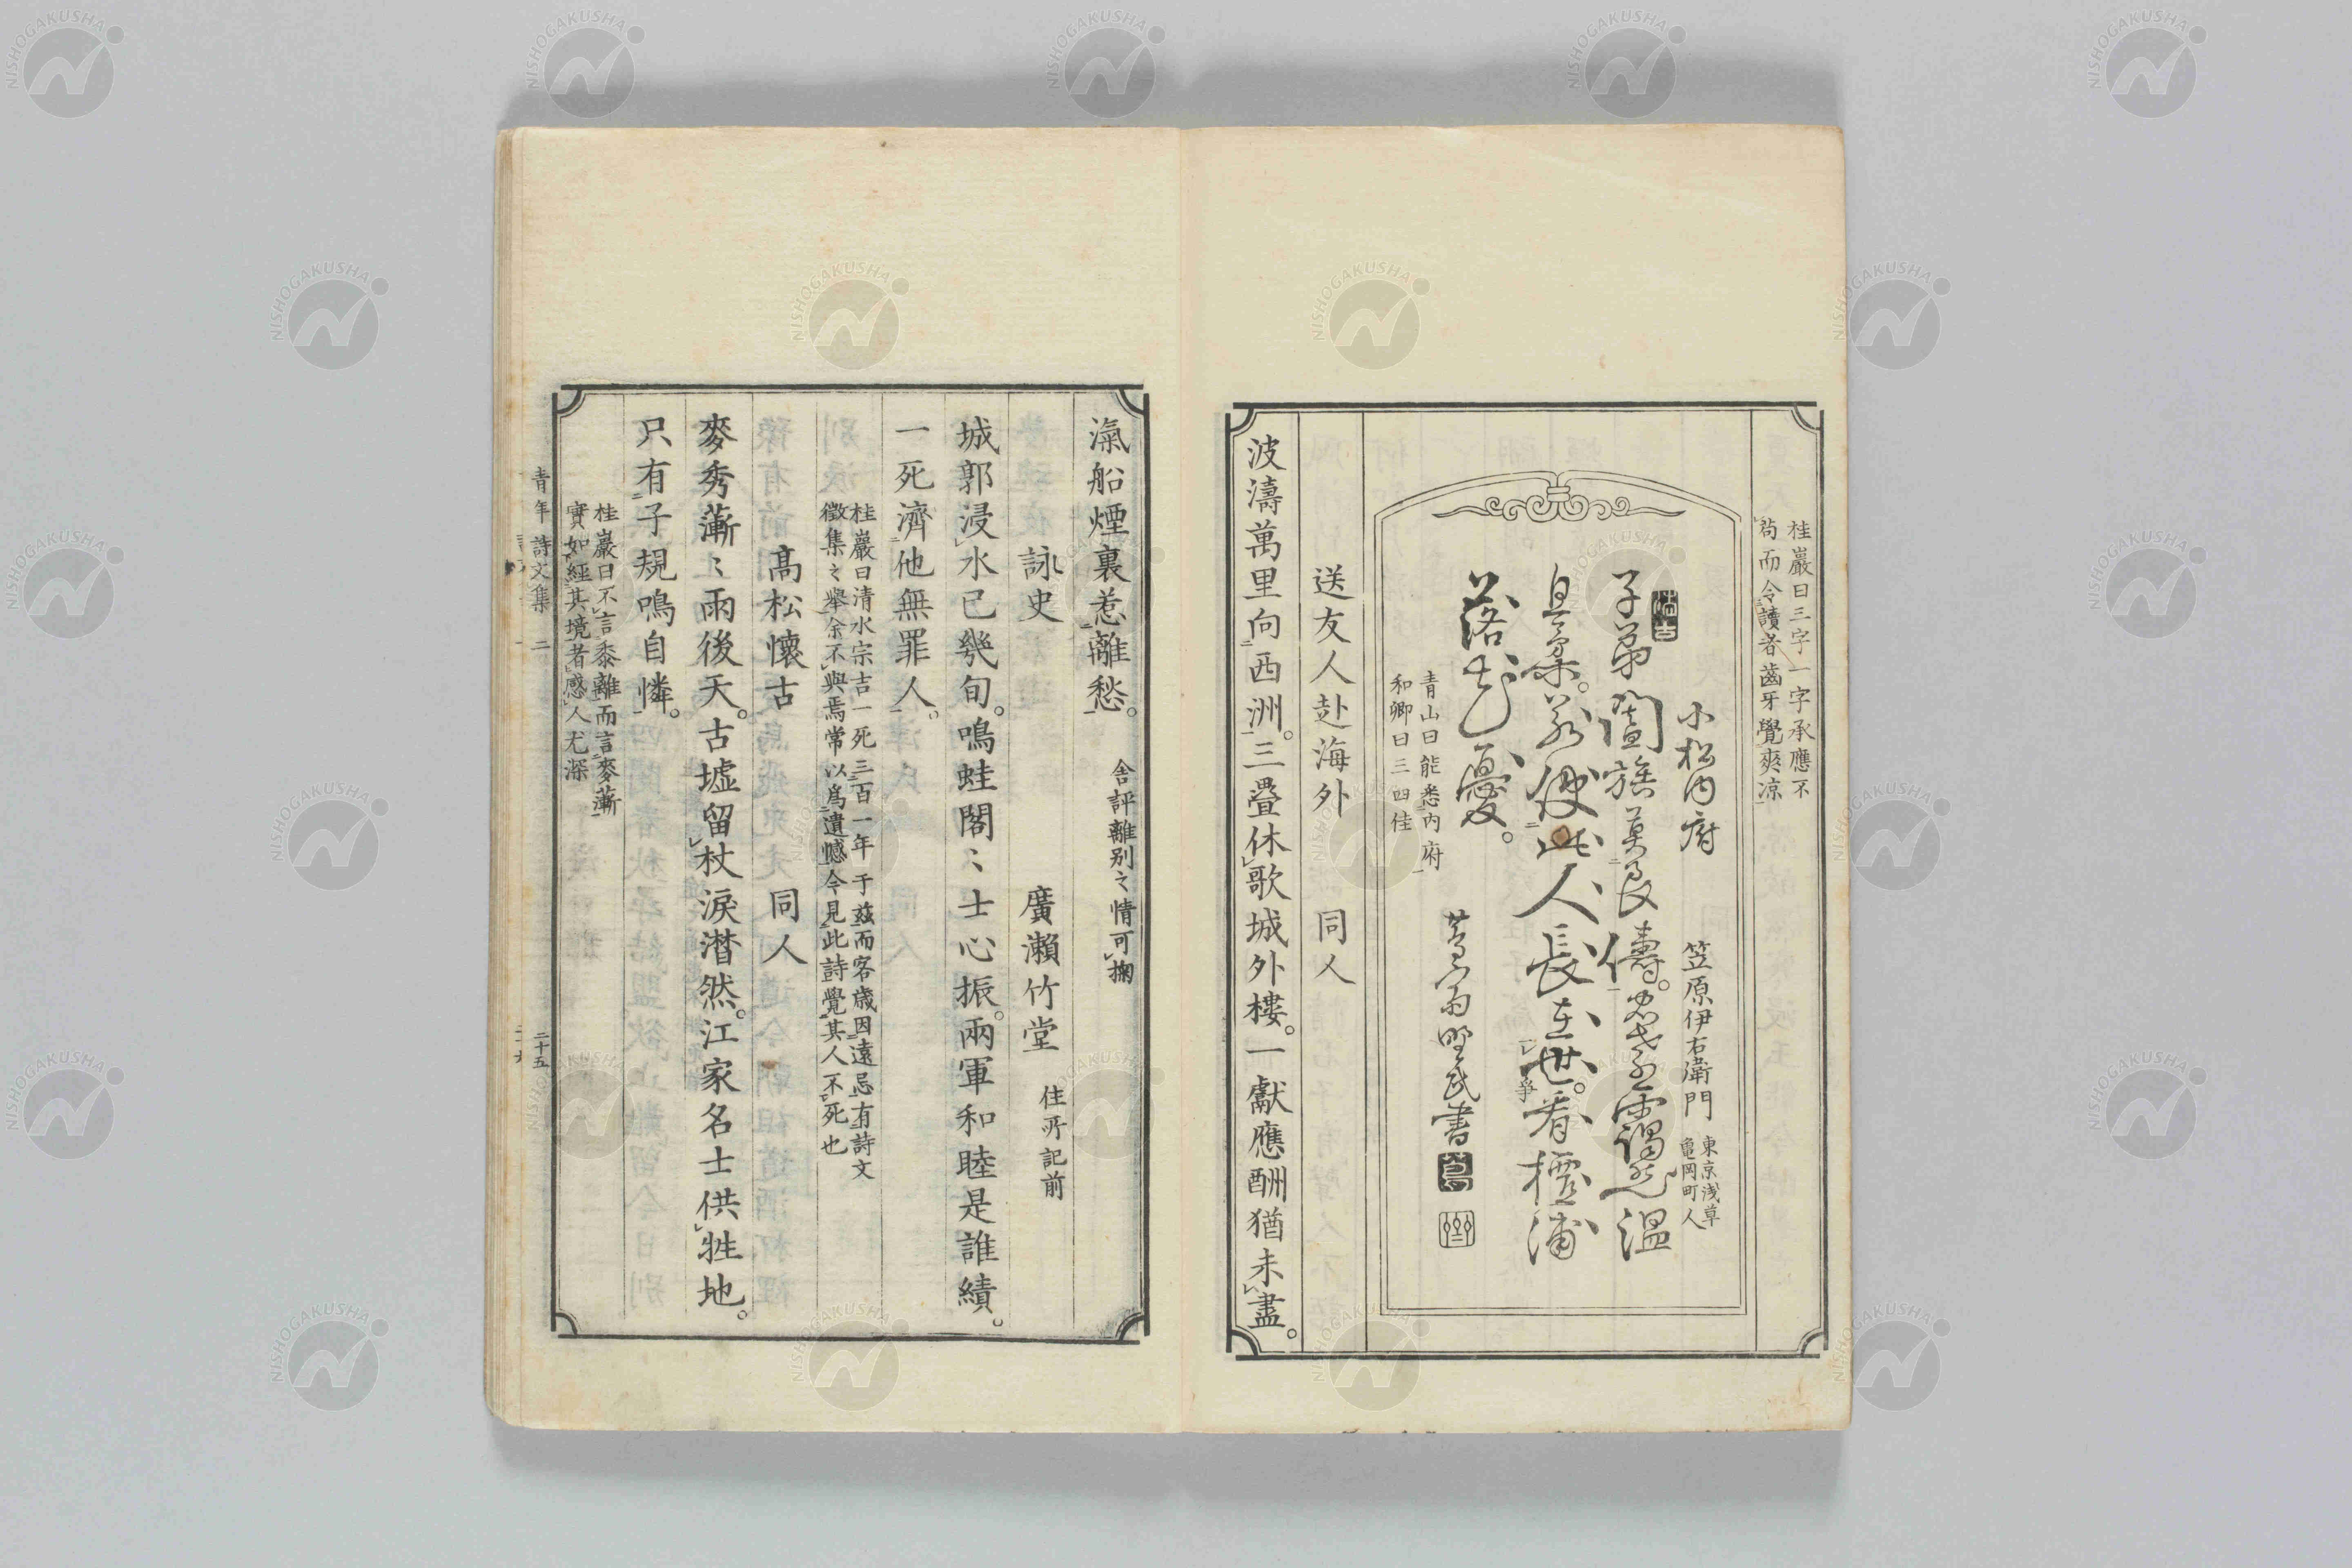 桂巖曰三字一字承應不
苟而令讀者齒牙覺爽凉
小松内府
笠原伊右衛門
東京浅草
亀岡町人
子弟闔族莫良儔。忠孝兼全靄然溫
且柔。若使此人長在世。爭看檀浦
落花憂。
書
青山曰能悉内府
和卿曰三四佳
送友人赴海外
同人
波濤萬里向西洲。三疊休歌城外樓。一獻應酬猶未盡。
滊船煙裏惹離愁。
舍評離別之情可掬
詠史
廣瀬竹堂
住所記前
城郭浸水已幾旬。鳴蛙閣〻士心振。兩軍和睦是誰績。
一死濟他無罪人。
桂巖曰清水宗吉一死三百一年于茲而客歳因遠忌有詩文
徵集之舉余不與焉常以爲遺憾今見此詩覺其人不死也
髙松懷古
同人
麥秀蔪〻雨後天。古墟留杖淚潸然。江家名士供牲地。
只有子規鳴自憐。
桂巖曰不言黍離而言麥蔪
實如經其境者感人尤深
青年詩文集
二
二十五
NISHOGAKUSHA